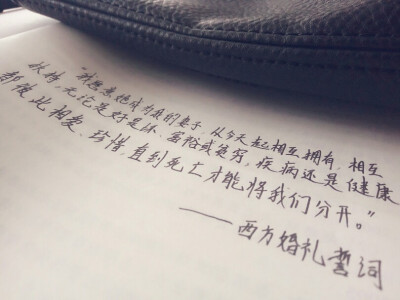 "我愿意她成为我的妻子，从今天起相互拥有，相互
扶持，无论是好是坏、富裕或贫穷，疾病还是健康
都彼此相爱、珍惜，直到死亡才能将我们分开。"
——西方婚礼誓词